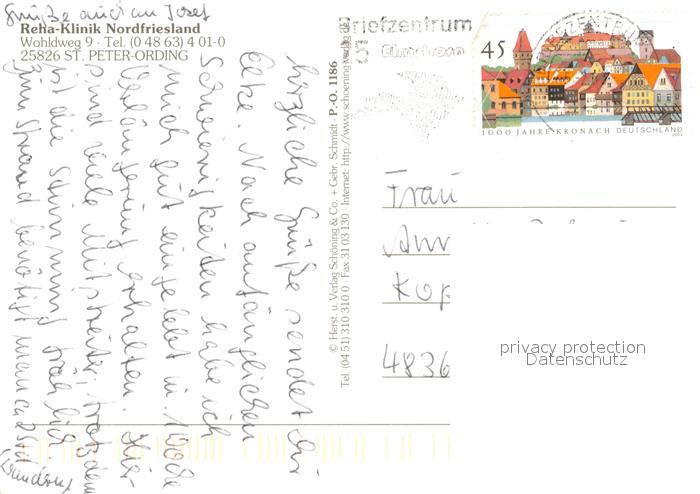 Grüße auch an Josef
Reha-Klinik Nordfriesland
Wohldweg 9 · Tel. (0 48 63) 4 01-0
25826 ST. PETER-ORDING
herzliche Grüße sendet dir
Elke. Nach anfänglichen
Schwierigkeiten habe ich
mich gut eingelebt u. 1 Woche
Verlängerung erhalten. Hier
sind viele Mitstreiter, trotzdem
ist die Stimmung fröhlich
zum Strand benötigt man ca 25
© Herst. u. Verlag Schöning & Co. + Gebr. Schmidt P.-O. 1186
Tel. (04 51) 310 310 0 · Fax 31 03 130 · Internet: http://www.schoening-verlag.de
Briefzentrum
45
1000 JAHRE KRONACH DEUTSCHLAND
Frau
4836
privacy protection
Datenschutz